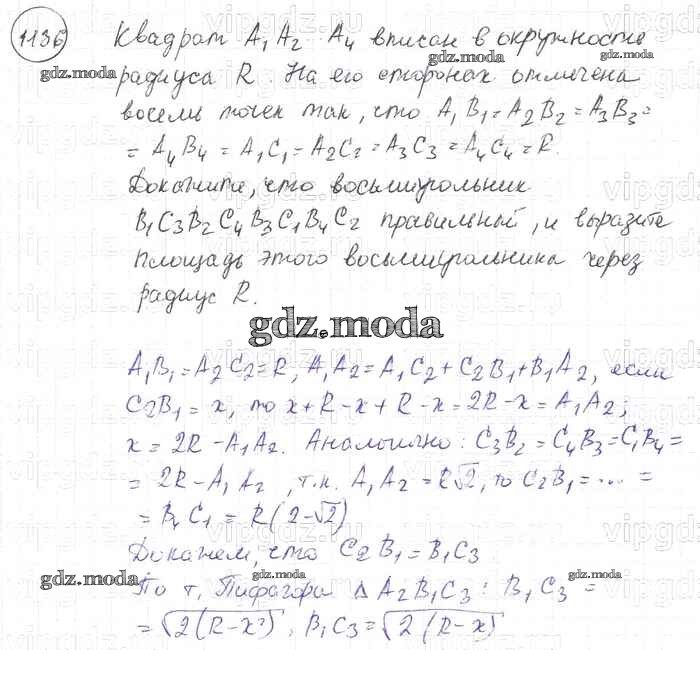 1136 Квадрат A₁A₂...A₄ вписан в окружность
радиуса R. На его сторонах отмечена
восемь точек так, что A₁B₁=A₂B₂=A₃B₃=
= A₄B₄ = A₁C₁ = A₂C₂ = A₃C₃ = A₄C₄ = R.
Докажите, что восьмиугольник
B₁C₃B₂C₄B₃C₁B₄C₂ правильный, и выразите
площадь этого восьмиугольника через
радиус R.
gdz.moda
A₁B₁ = A₂C₂ = R, A₁A₂ = A₁C₂ + C₂B₁ + B₁A₂, если
C₂B₁ = x, то x + R - x + R - x = 2R - x = A₁A₂;
x = 2R - A₁A₂. Аналогично: C₃B₂ = C₄B₃ = C₁B₄ =
= 2R - A₁A₂, т.к. A₁A₂ = R√2, то C₂B₁ = ... =
= B₄C₁ = R(2-√2)
Докажем, что C₂B₁ = B₁C₃.
По т. Пифагора Δ A₂B₁C₃: B₁C₃ =
= √2(R-x²), B₁C₃ = √2(R-x)